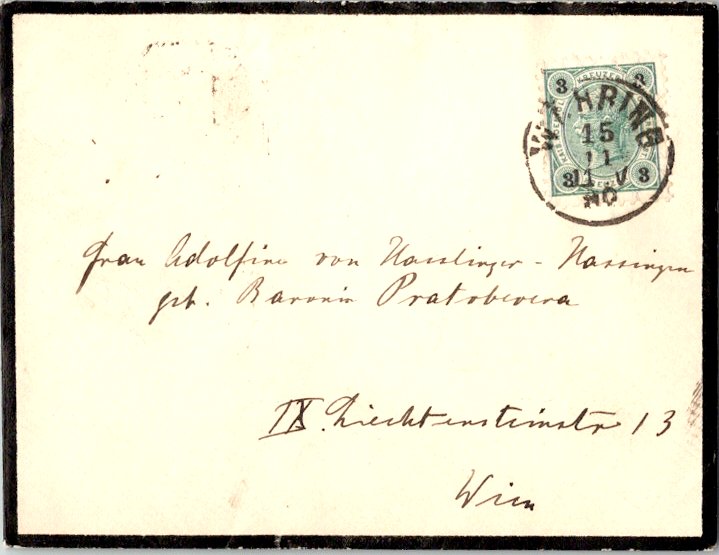 3 KREUZER 3
WÄHRING
15
11
11 V
90
3 3
Frau Adolfine von Hasslinger - Hassingen
geb. Baronin Pratobevera
IX. Liechtensteinstr 13
Wien